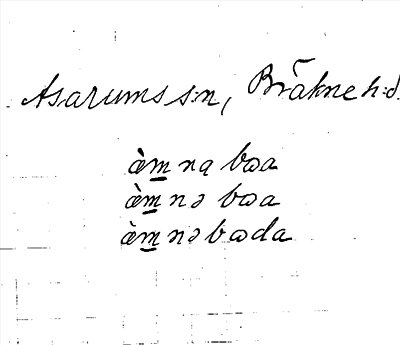 Asarums s:n, Bräkne h:d.
àm̲ ną bωa
àm̲ nə bωa
àm̲ nə bωda